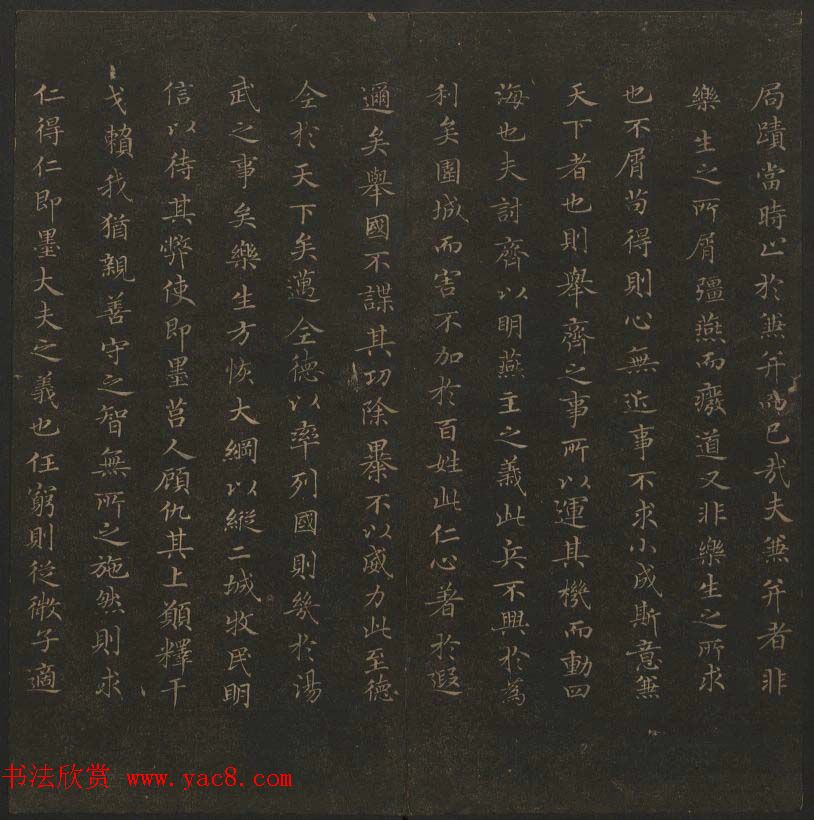 局蹟當時止於兼并而已哉夫兼并者非
樂生之所屑彊燕而癈道又非樂生之所求
也不屑苟得則心無近事不求小成斯意兼
天下者也則舉齊之事所以運其機而動四
海也夫討齊以明燕主之義此兵不興於為
利矣圍城而害不加於百姓此仁心著於遐
邇矣舉國不謀其功除暴不以威力此至德
全於天下矣邁全德以率列國則幾於湯
武之事矣樂生方恢大綱以縱二城牧民明
信以待其弊使即墨莒人顧仇其上願釋干
戈賴我猶親善守之智無所之施然則求
仁得仁即墨大夫之義也任窮則從微子適
书法欣赏 www.yac8.com